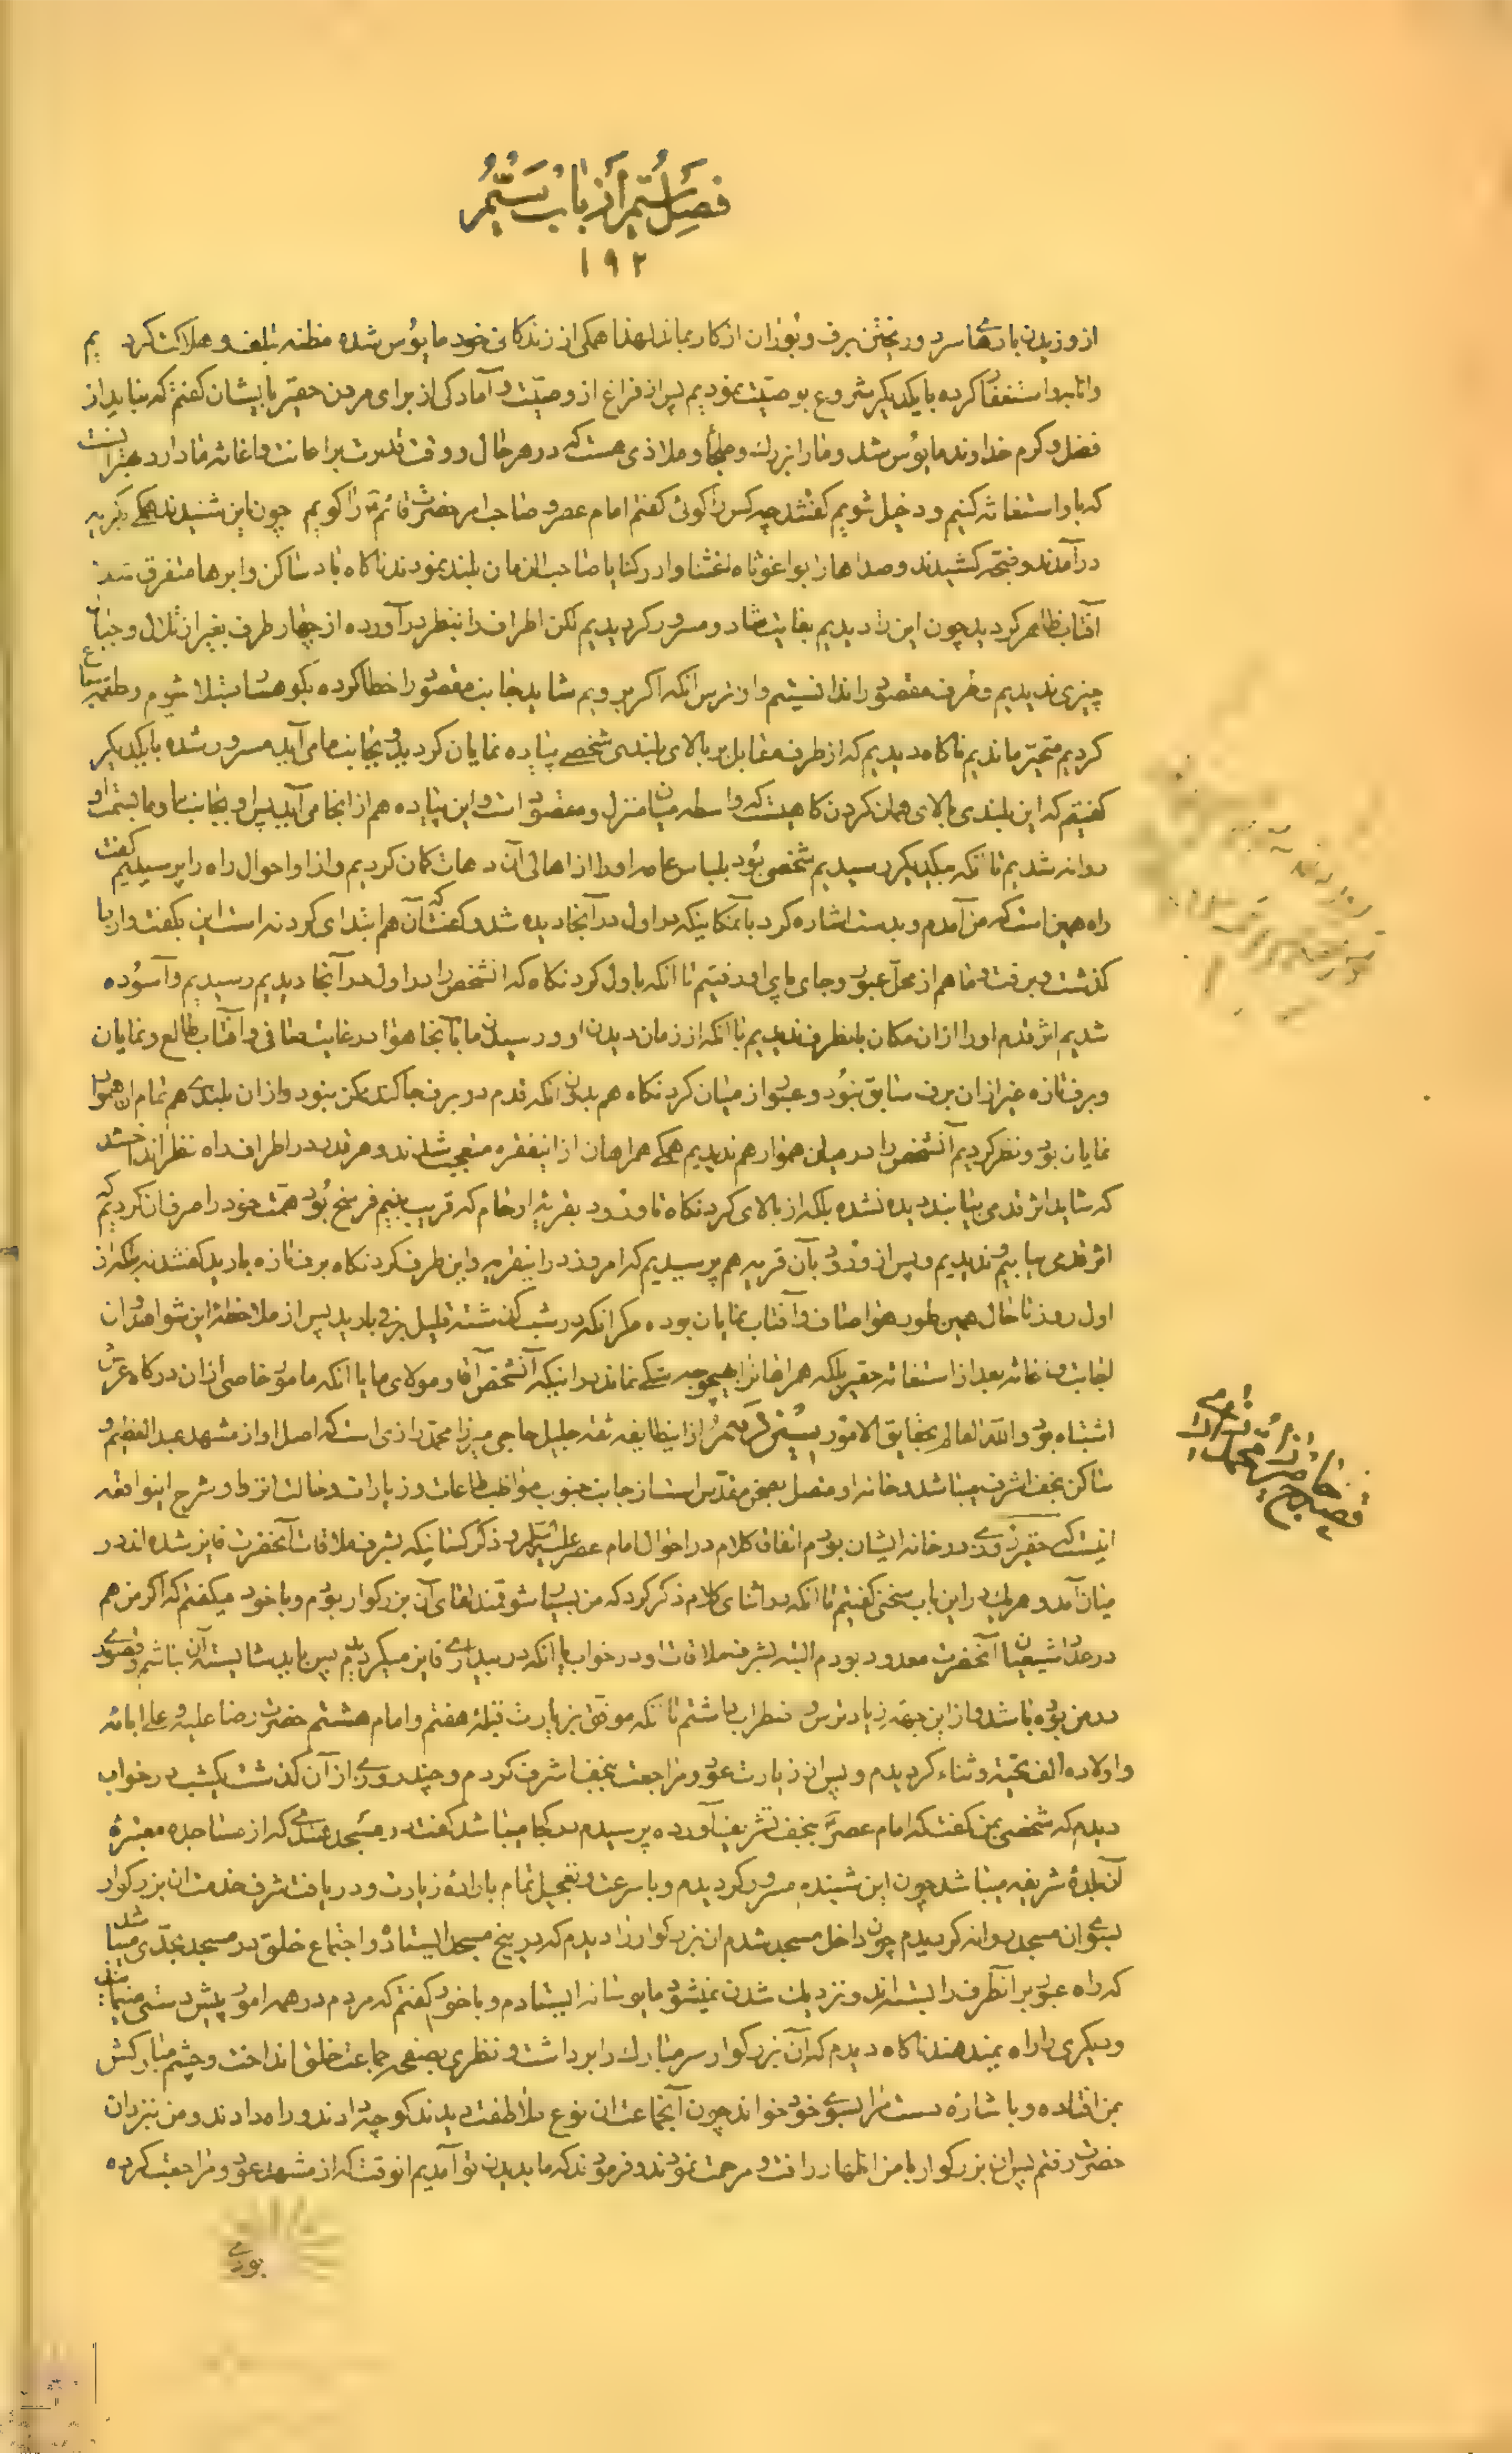 فصل ستم از باب ستم
۱۹۲
از وزیدن بادهای سرد و ریختن برف و بوران از کار بماند لهذا همکی از زندکانی خود مایوس شده مظنه تلف و هلاکت کردیم
وانابه و استغفار کرده با یکدیکر شروع بوصیت نمودیم پس از فراغ از وصیت و آمادکی از برای مردن حقیر بایشان کفتم که نباید از
فضل و کرم خداوند مایوس شد و ما را بزرك و ملجأ و ملاذی هست که در هر حال و وقت قدرت بر اعانت و اغاثه ما دارد بهتر آنست
که باو استغاثه کنیم و دخیل شویم کفتند چه کس را کوئی کفتم امام عصر و صاحب امر حضرت قائم را کویم چون این شنیدند همکی بکریه
درآمدند و ضجه کشیدند و صداها را بواغوثاه اغثنا و ادرکنا یا صاحب الزمان بلند نمودند ناکاه باد ساکن و ابرها متفرق شد
آفتاب ظاهر کردید چون این را دیدیم بغایت شاد و مسرور کردیدیم لکن اطراف را بنظر درآورده از چهار طرف بغیر از تلال و جبال
چیزی ندیدیم و طرف مقصود را ندانستیم و از ترس انکه اکر برویم شاید جانب مقصود را خطا کرده بکوهسار مبتلا شویم و طعمه سباع
کردیم متحیر ماندیم ناکاه دیدیم که از طرف مقابل بر بالای بلندی شخصی پیاده نمایان کردید و بجانب ما می آید مسرور شده با یکدیکر
کفتیم که این بلندی بالای همان کردن کاهیست که واسطه میان منزل و مقصود است و این پیاده هم از انجا می آید پس او بجانب ما و ما بسمت او
روانه شدیم تا آنکه بیکدیکر رسیدیم شخصی بود بلباس عامه او را از اهالی آن دهات کمان کردیم و از او احوال راه را پرسیدیم کفت
راه همین است که من آمدم و بدست اشاره کرد بآنمکانیکه در اول در آنجا دیده شد و کفت که آن هم ابتدای کردنه است این بکفت و از ما
کذشت و برفت و ما هم از محل عبور و جای پای او رفتیم تا انکه باول کردنکاه که انشخص را در اول در آنجا دیدیم رسیدیم و آسوده
شدیم اثر قدم او را از ان مکان باینطرف ندیدیم با آنکه از زمان دیدن او و رسیدن ما بآنجا هوا در غایت صافی و آفتاب طالع و نمایان
و برف تازه غیر از ان برف سابق نبود و عبور از میان کردنکاه هم بدون انکه قدم در برف جا کند ممکن نبود و از ان بلندی هم تمام ان هموار
نمایان بود و نظر کردیم آنشخص را در میان هموار هم ندیدیم همکی همراهان از اینفقره متعجب شدند و هر قدر در اطراف راه نظر انداختند
که شاید اثر قدمی بیابند دیده نشده بلکه از بالای کردنکاه تا ورود بقریه ارخام که قریب بنیم فرسخ بود همت خود را صرف ان کردیم که
اثر قدمی بیابیم و ندیدیم و پس از ورود بآن قریه هم پرسیدیم که امروز در اینقریه و این طرف کردنکاه برف تازه بارید کفتند نه بلکه از
اول روز تا حال همین طور هوا صاف و آفتاب نمایان بوده مکر انکه در شب کذشته قلیل برفی بارید پس از ملاحظه این شواهد و ان
اجابت و اغاثه بعد از استغاثه حقیر بلکه همراهان را بهیچوجه شکی نماند در اینکه آنشخص آقا و مولای ما یا انکه مامور خاصی از ان درکاه عرش
اشتباه بود و الله العالم بحقایق الامور بیستم از اینطایفه ثقه جلیل حاجی میرزا محمد رازی است که اصل او از مشهد عبد العظیم و
ساکن نجف اشرف میباشد و خانه او متصل بصحن مقدس است از جانب جنوب مواظب طاعات و زیارات و حالت انزوا و شرح اینواقعه
اینست که حقیر روزی در خانه ایشان بودم اتفاق کلام در احوال امام عصر علیه السلام و ذکر کسانیکه بشرف ملاقات آنحضرت فایز شده اند در
میان آمد و هر یك در این باب سخنی کفتیم تا انکه در اثنای کلام ذکر کرد که من بسیار شوقمند لقای آن بزرکوار بودم و با خود میکفتم که اکر من هم
در عداد شیعیان آنحضرت معدود بودم البته بشرف ملاقات او در خواب یا انکه در بیداری فایز میکردیدم پس باید شایسته آن نباشم و قصوری
در من بوده باشد و از این جهه زیاد ترس و اضطراب داشتم تا آنکه موفق بزیارت قبله هفتم و امام هشتم حضرت رضا علیه و علی ابائه
و اولاده الف تحیه و ثناء کردیدم و پس از زیارت عود و مراجعت بنجف اشرف کردم و چند روزی از آن کذشت یکشب در خواب
دیدم که شخصی بمن کفت که امام عصر بنجف تشریف آورده پرسیدم در کجا میباشد کفت در مسجد هندی که از مساجد معتبره
آن بلده شریفه میباشد چون این شنیدم مسرور کردیدم و با سرعت و تعجیل تمام باراده زیارت و دریافت شرف خدمت ان بزرکوار
بسوی ان مسجد روانه کردیدم چون داخل مسجد شدم ان بزرکوار را دیدم که در بیخ مسجد ایستاده و اجتماع خلق در مسجد بحدی میباشد
که راه عبور بر انطرف را بسته اند و نزدیك شدن نمیشود مایوسانه ایستادم و با خود کفتم که مردم در همه امور پیش دستی مینمایند
و دیکری را راه نمیدهند ناکاه دیدم که آن بزرکوار سر مبارك را برداشت و نظری بصفحه جماعت خلق انداخت و چشم مبارکش
بمن افتاده و با شاره دست مرا بسوی خود خواند چون آنجماعت ان نوع ملاطفت دیدند کوچه دادند و راه دادند و من نزد ان
حضرت رفتم پس ان بزرکوار با من اظهار رافت و مرحمت نمودند و فرمودند که ما بدیدن تو آمدیم انوقت که از مشهد عود و مراجعت کرده
بودی
قصه حاج میرزا محمد رازی